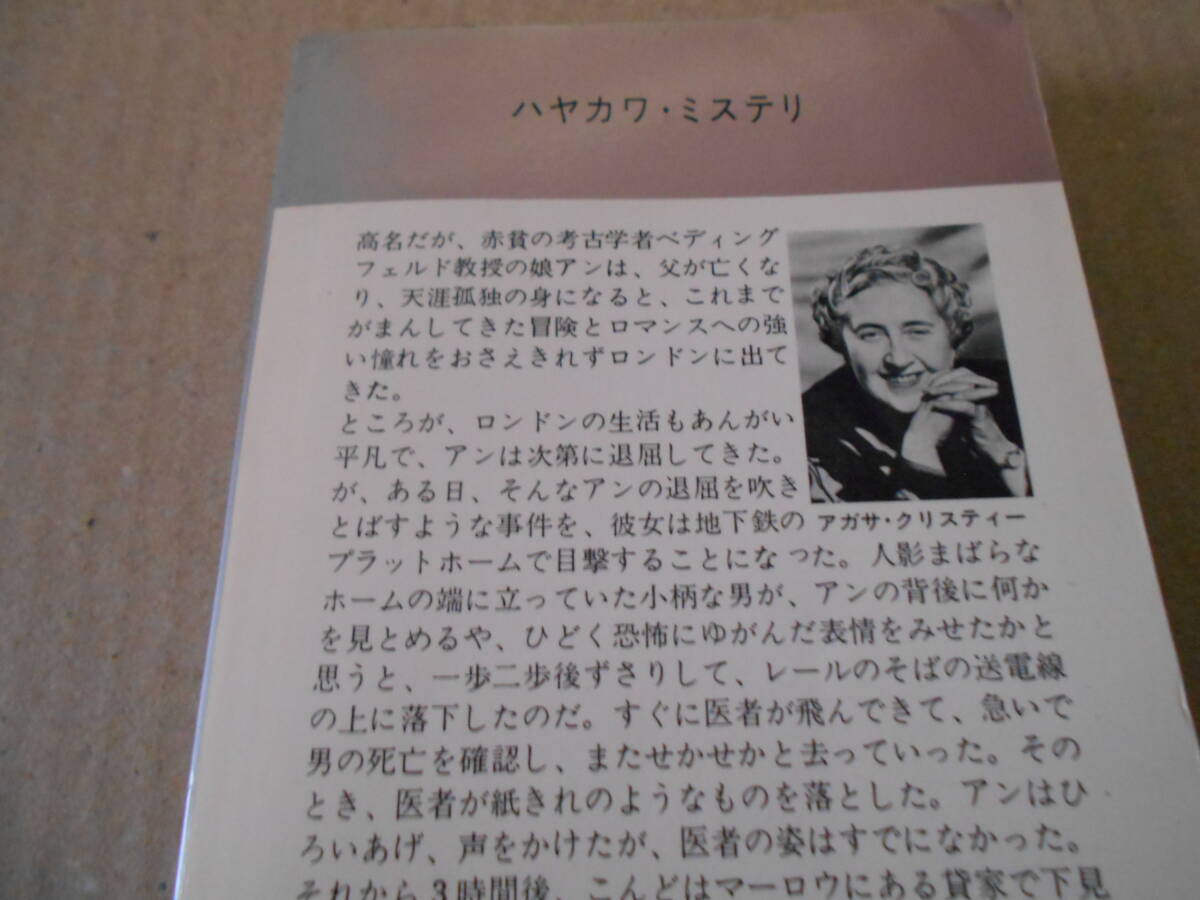 ハヤカワ・ミステリ
高名だが、赤貧の考古学者ベディング
フェルド教授の娘アンは、父が亡くな
り、天涯孤独の身になると、これまで
がまんしてきた冒険とロマンスへの強
い憧れをおさえきれずロンドンに出て
きた。
ところが、ロンドンの生活もあんがい
平凡で、アンは次第に退屈してきた。
が、ある日、そんなアンの退屈を吹き
とばすような事件を、彼女は地下鉄の
アガサ・クリスティー
プラットホームで目撃することになった。人影まばらな
ホームの端に立っていた小柄な男が、アンの背後に何か
を見とめるや、ひどく恐怖にゆがんだ表情をみせたかと
思うと、一歩二歩後ずさりして、レールのそばの送電線
の上に落下したのだ。すぐに医者が飛んできて、急いで
男の死亡を確認し、またせかせかと去っていった。その
とき、医者が紙きれのようなものを落とした。アンはひ
ろいあげ、声をかけたが、医者の姿はすでになかった。
それから3時間後、こんどはマーロウにある貸家で下見